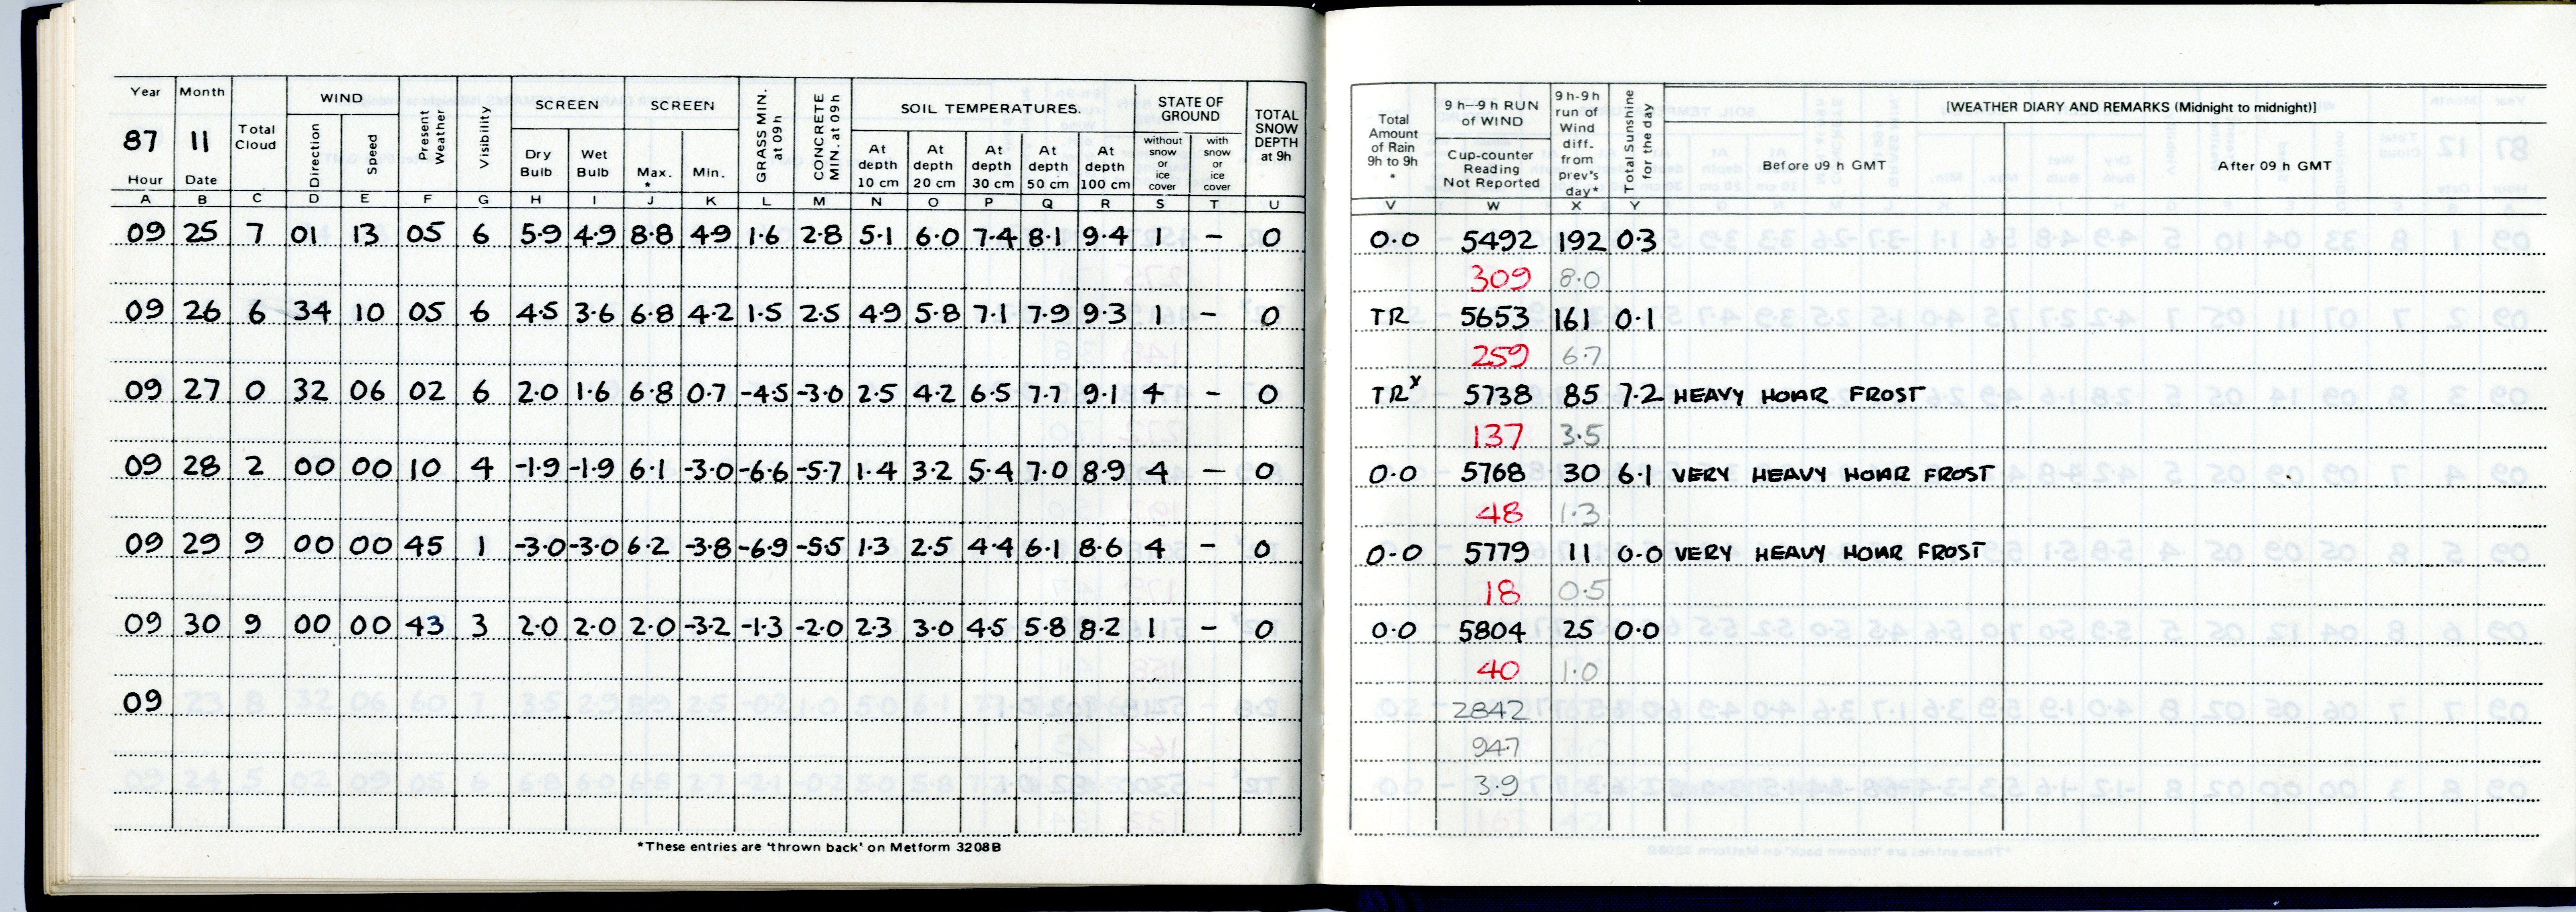 Year Month Total Cloud WIND Present Weather Visibility SCREEN SCREEN GRASS MIN. at 09h CONCRETE MIN. at 09h SOIL TEMPERATURES. STATE OF GROUND TOTAL SNOW DEPTH at 9h
87 11 Direction Speed Dry Bulb Wet Bulb Max. * Min. At depth 10 cm At depth 20 cm At depth 30 cm At depth 50 cm At depth 100 cm without snow or ice cover with snow or ice cover
Hour Date
A B C D E F G H I J K L M N O P Q R S T U
09 25 7 01 13 05 6 5.9 4.9 8.8 4.9 1.6 2.8 5.1 6.0 7.4 8.1 9.4 1 – 0
09 26 6 34 10 05 6 4.5 3.6 6.8 4.2 1.5 2.5 4.9 5.8 7.1 7.9 9.3 1 – 0
09 27 0 32 06 02 6 2.0 1.6 6.8 0.7 -4.5 -3.0 2.5 4.2 6.5 7.7 9.1 4 – 0
09 28 2 00 00 10 4 -1.9 -1.9 6.1 -3.0 -6.6 -5.7 1.4 3.2 5.4 7.0 8.9 4 – 0
09 29 9 00 00 45 1 -3.0 -3.0 6.2 -3.8 -6.9 -5.5 1.3 2.5 4.4 6.1 8.6 4 – 0
09 30 9 00 00 43 3 2.0 2.0 2.0 -3.2 -1.3 -2.0 2.3 3.0 4.5 5.8 8.2 1 – 0
09
*These entries are 'thrown back' on Metform 3208B
Total Amount of Rain 9h to 9h * 9 h–9 h RUN of WIND Cup-counter Reading Not Reported 9 h-9h run of Wind diff. from prev's day* Total Sunshine for the day [WEATHER DIARY AND REMARKS (Midnight to midnight)]
Before 09 h GMT After 09 h GMT
V W X Y
0.0 5492 192 0.3
309 8.0
TR 5653 161 0.1
259 6.7
TRˣ 5738 85 7.2 HEAVY HOAR FROST
137 3.5
0.0 5768 30 6.1 VERY HEAVY HOAR FROST
48 1.3
0.0 5779 11 0.0 VERY HEAVY HOAR FROST
18 0.5
0.0 5804 25 0.0
40 1.0
2842
94.7
3.9